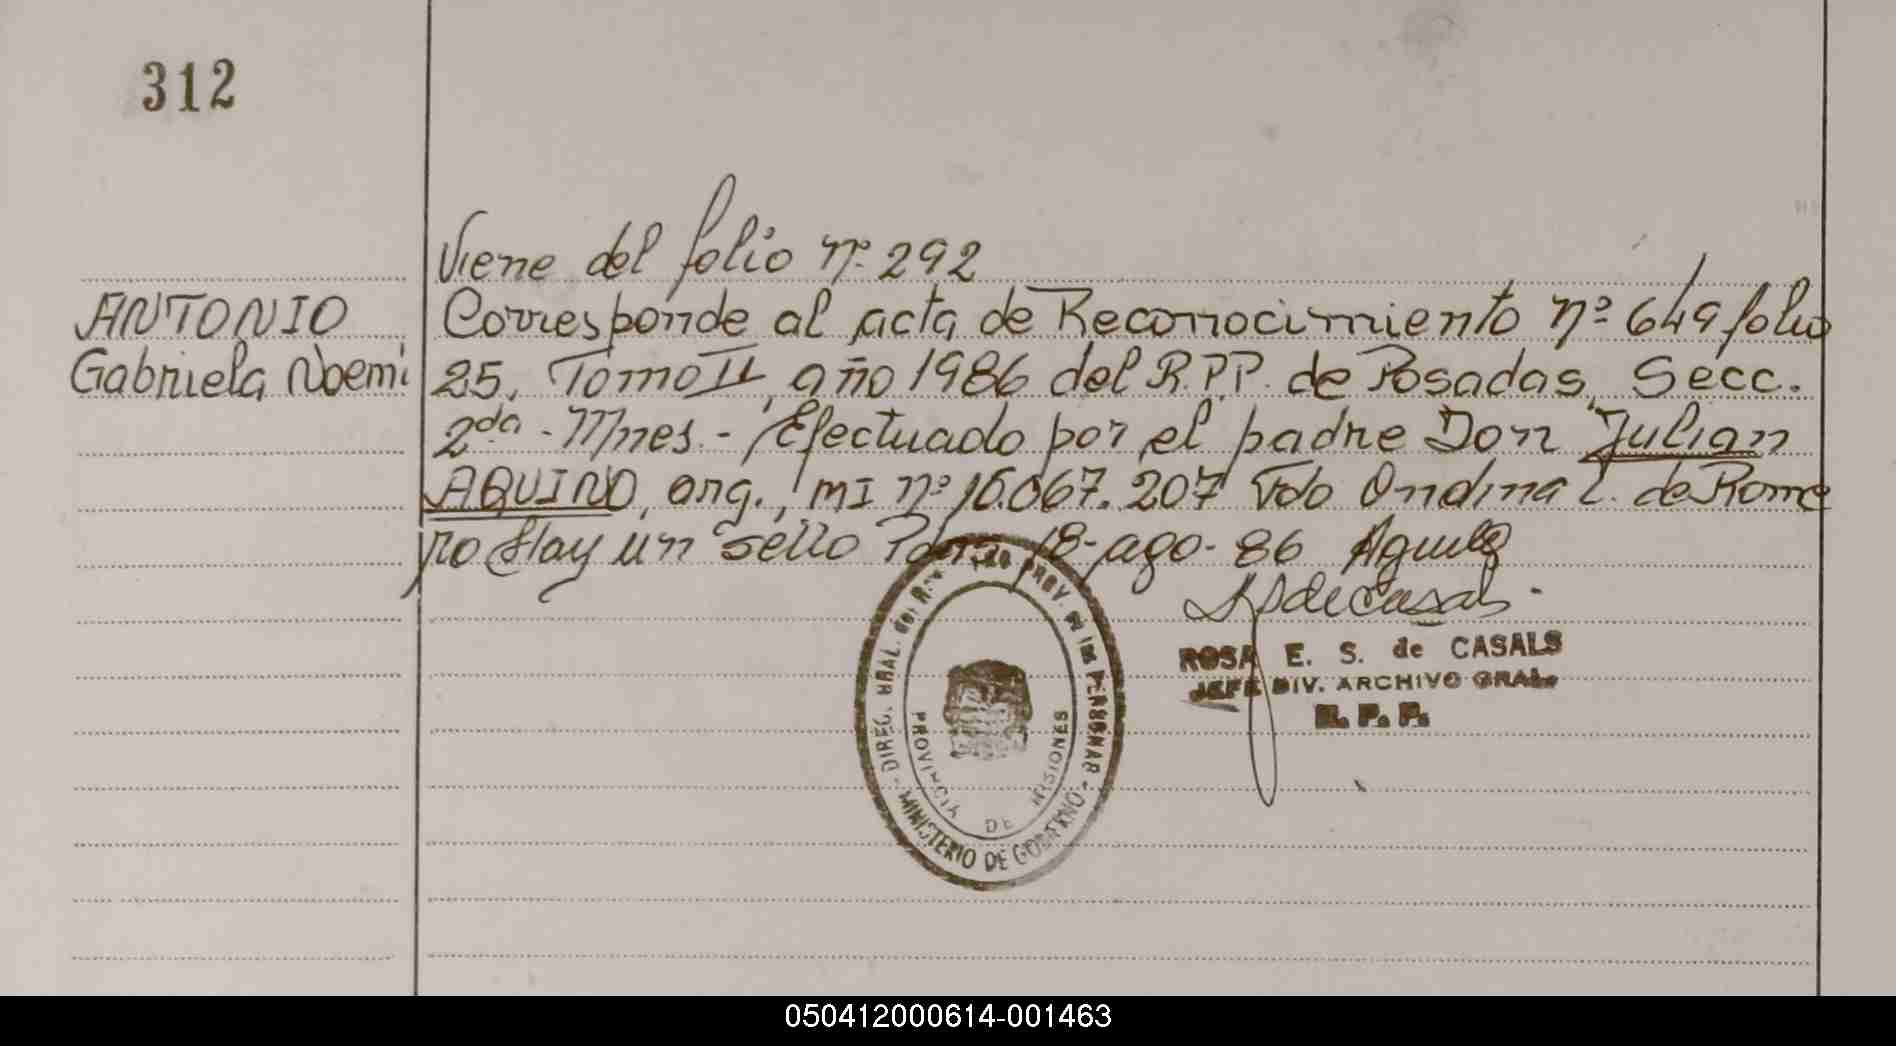 312
Viene del folio nº 292
ANTONIO
Gabriela Noemi
Corresponde al acta de Reconocimiento nº 649 folio
25, Tomo II, año 1986 del R.P.P. de Posadas, Secc.
2da - M/nes. - Efectuado por el padre Don Julian
AQUINO, arg., MI nº 16.067.207 Fdo Ondina L. de Rome
ro Hay un sello Pdas 18-ago-86
ROSA E. S. de CASALS
JEFE DIV. ARCHIVO GRAL.
R. P. P.
DIREC. GRAL. del PROV. de las PERSONAS
MINISTERIO DE GOBIERNO
PROVINCIA DE MISIONES
050412000614-001463